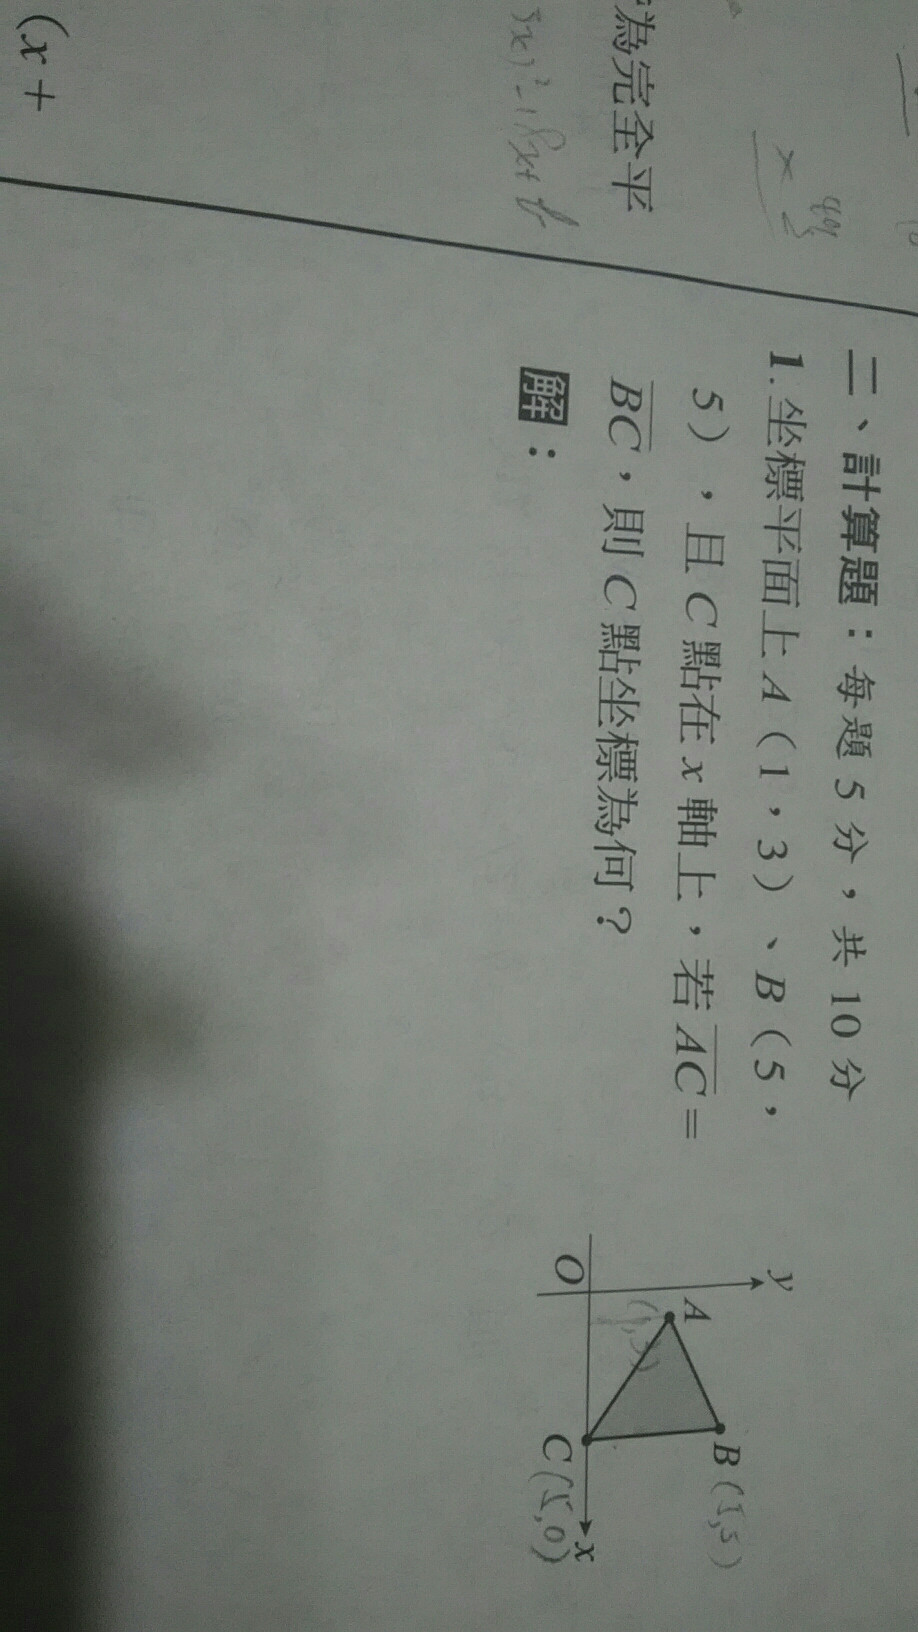 為完全平
(x+
二、計算題：每題 5 分，共 10 分
1. 坐標平面上 A（1，3）、B（5，
5），且 C 點在 x 軸上，若 AC =
BC，則 C 點坐標為何？
解：
y
A
(1,3)
B (5,5)
O
C (5,0)
x